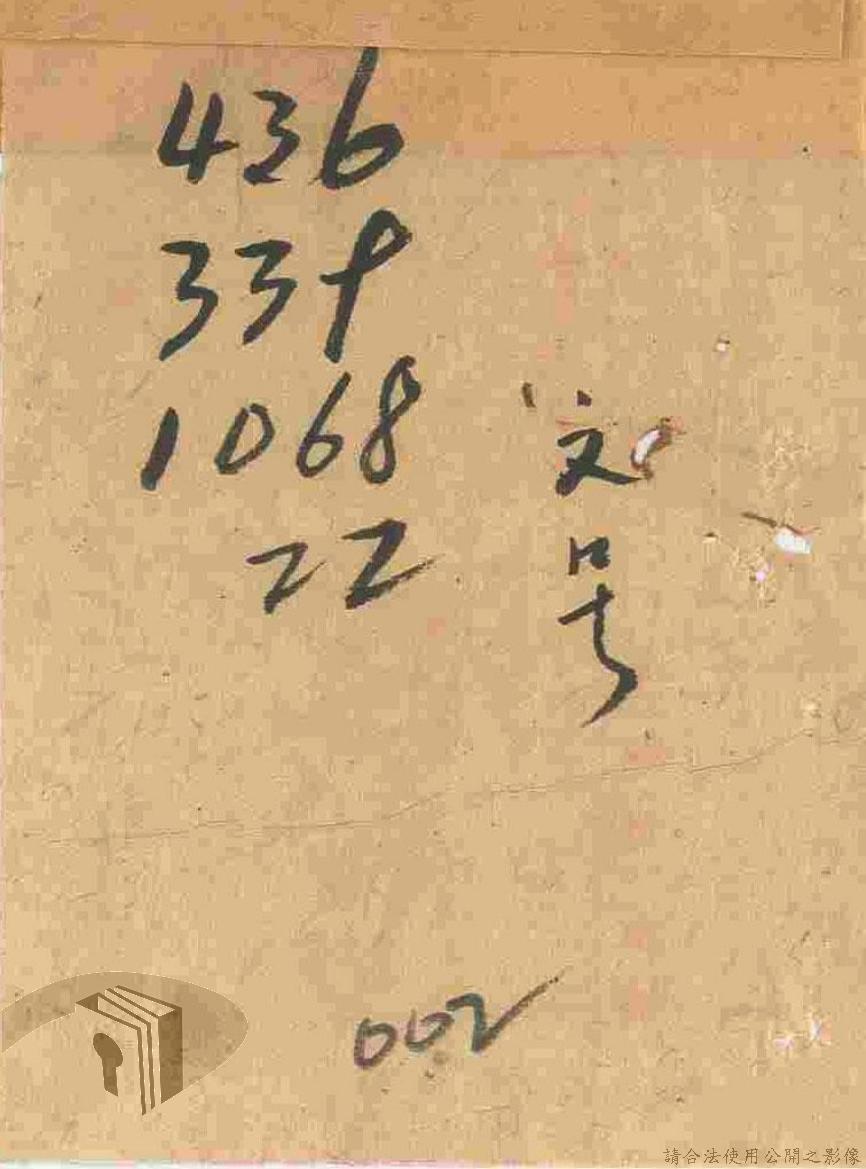 436
339
1068
22
文号
002
請合法使用公開之影像